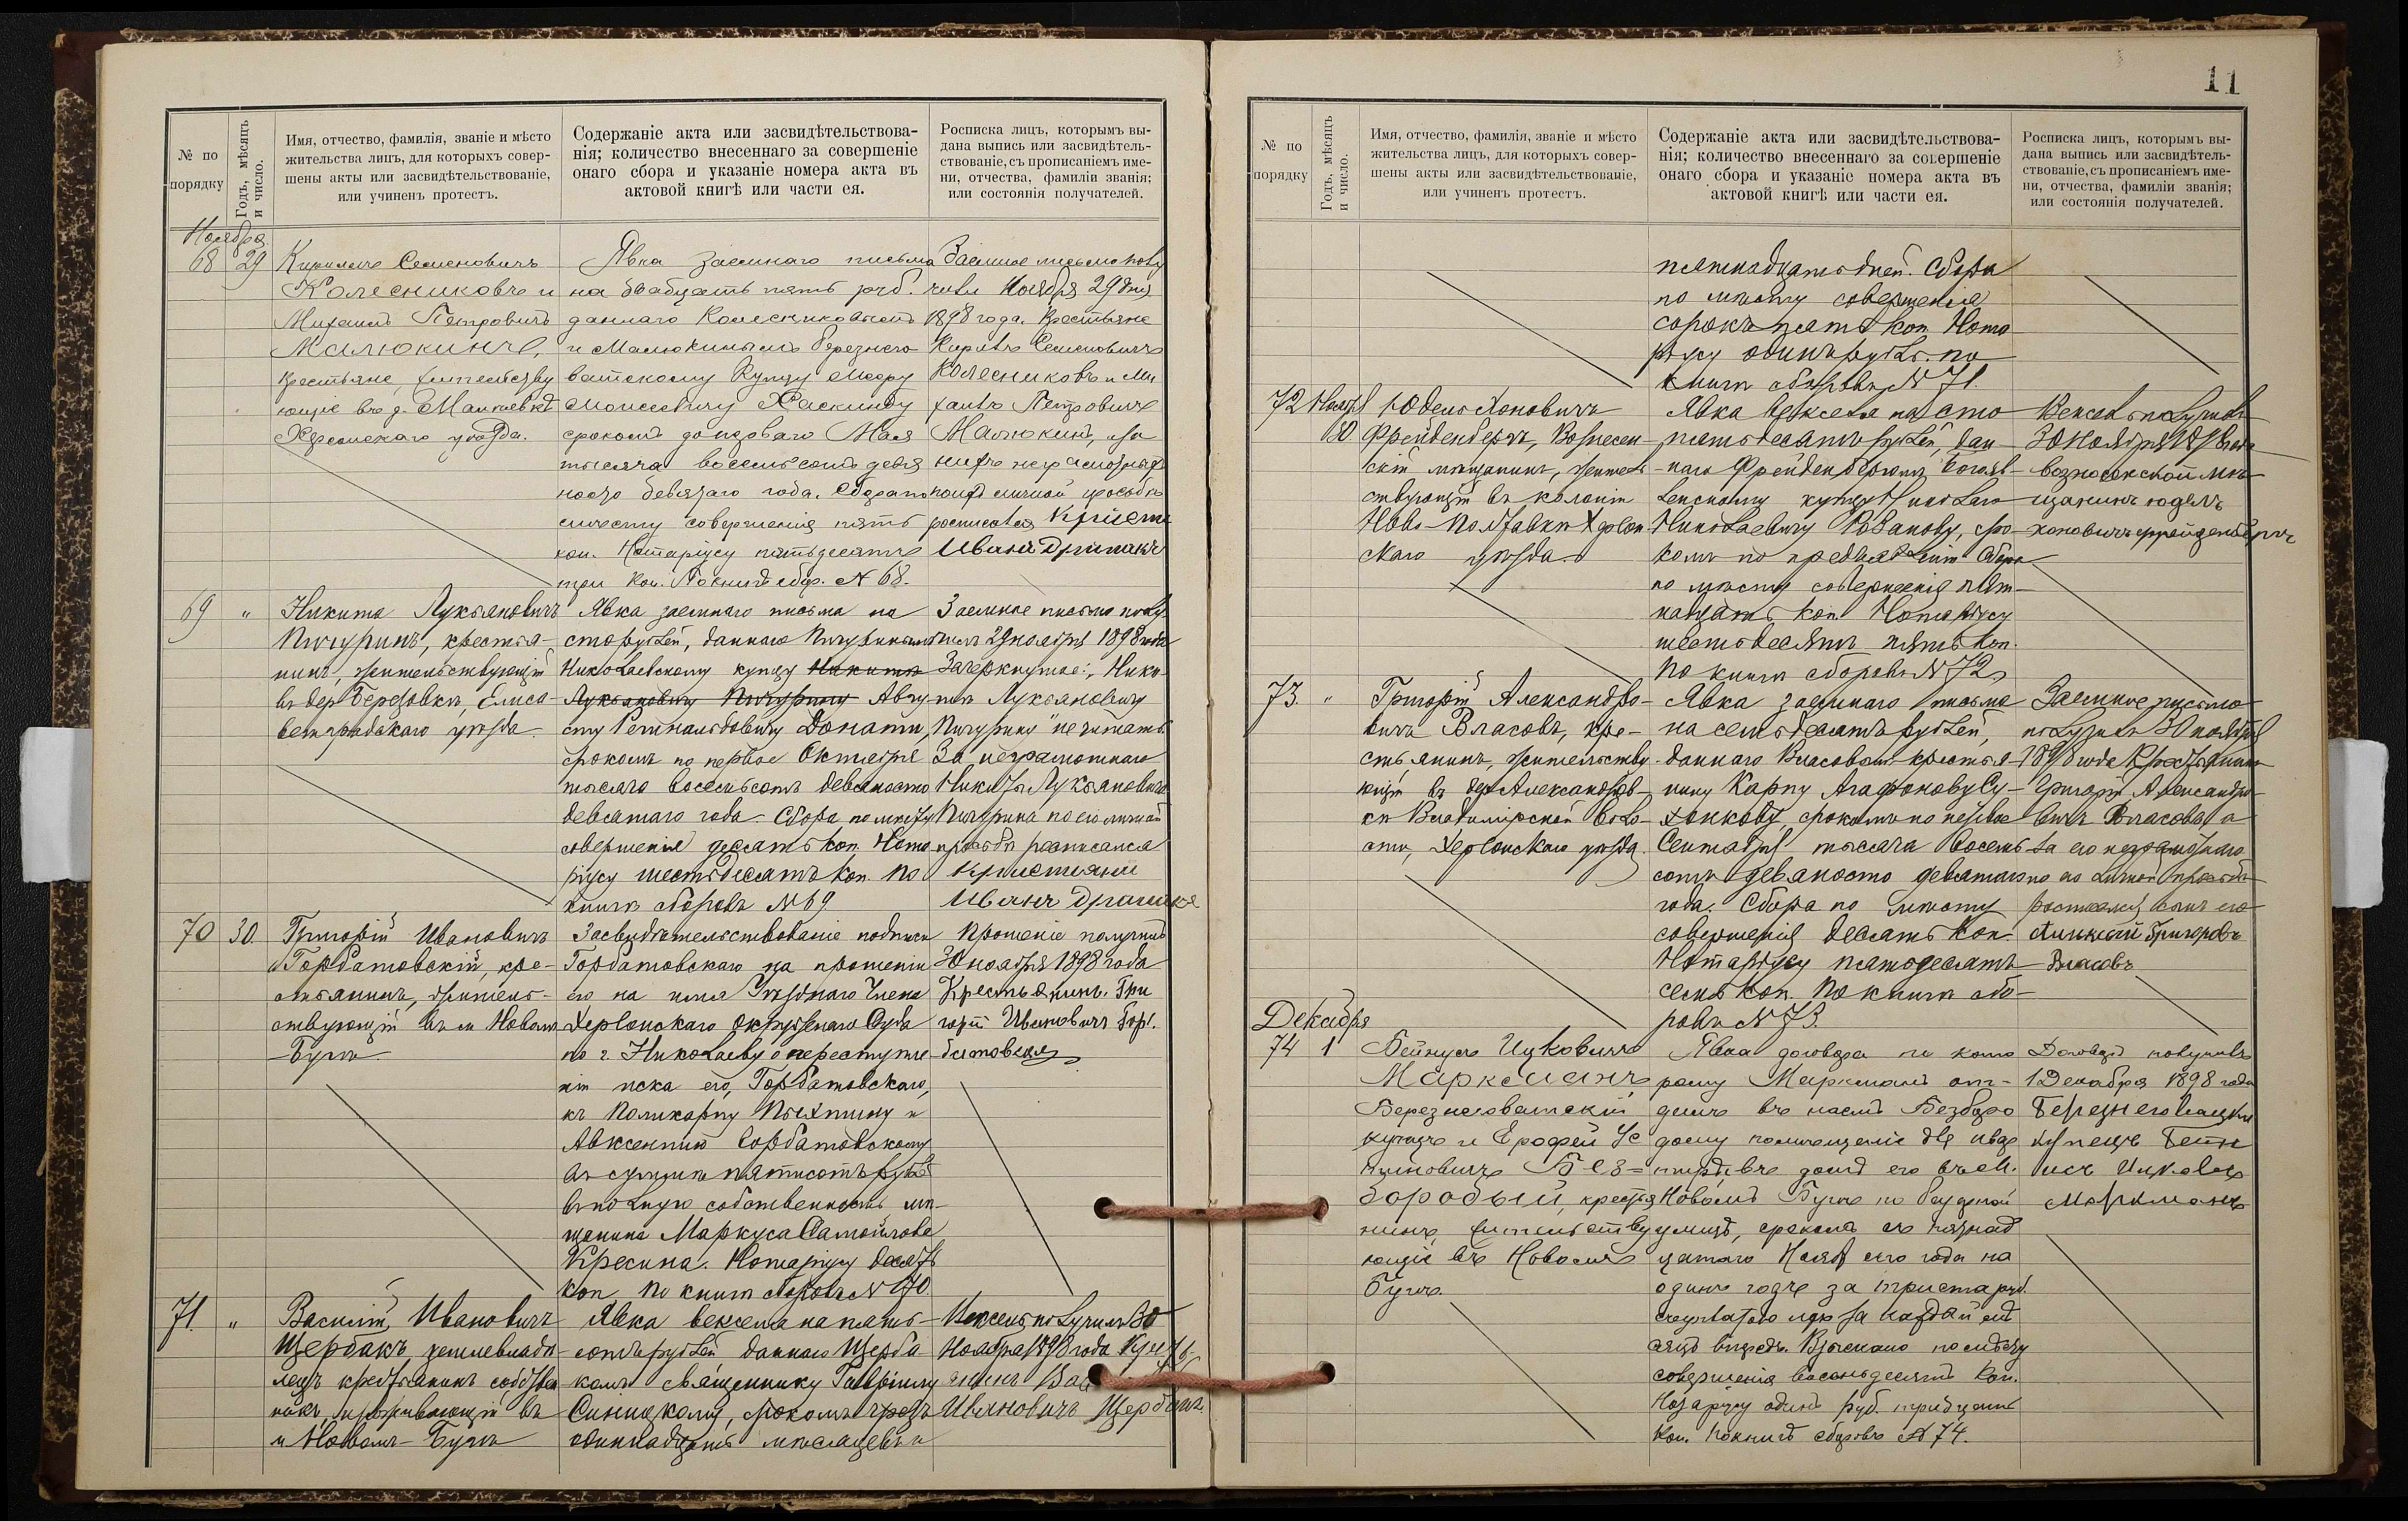 11
№ по порядку
Годъ, мѣсяцъ и число.
Имя, отчество, фамилія, званіе и мѣсто
жительства лицъ, для которыхъ совер-
шены акты или засвидѣтельствованіе,
или учиненъ протестъ.
Содержаніе акта или засвидѣтельствова-
нія; количество внесеннаго за совершеніе
онаго сбора и указаніе номера акта въ
актовой книгѣ или части ея.
Росписка лицъ, которымъ вы-
дана выпись или засвидѣтель-
ствованіе, съ прописаніемъ име-
ни, отчества, фамиліи званія;
или состоянія получателей.
Ноября
68 29
Кириллъ Семеновичъ
Колесниковъ и
Михаилъ Петровичъ
Малюкинъ,
крестьяне, жительству
ющіе въ д.
Херсонскаго уѣзда.
Явка заемнаго письма
на двадцать пять руб.
даннаго Колесниковымъ
и Малюкинымъ Березнего
ватскому Купцу Мееру
Моисеевичу Хаскинду
срокомъ до перваго Мая
тысяча восемьсотъ девя
носто девятаго года. Сбора по
мѣсту совершенія пять
коп. Нотаріусу пятьдесятъ
три коп. По книгѣ сбор. № 68.
Заемное письмо полу
чили Ноября 29 дня
1898 года. Крестьяне
Кирилъ Семеновичъ
Колесниковъ и Ми
хаилъ Петровичъ
Малюкинъ, а за
нихъ неграмотныхъ
по ихъ личной просьбѣ
росписался
Иванъ
69 "
Никита Лукьяновичъ
Пичуринъ, крестья-
нинъ, жительствующій
въ дер. Березовкѣ, Елиса-
ветградскаго уѣзда.
Явка заемнаго письма на
сто рублей, даннаго Пичуринымъ
Николаевскому купцу Никитѣ
Лукьяновичу Пичурину Авгу-
сту Донати,
срокомъ по первое Октября
тысяча восемьсотъ девяносто
девятаго года. Сбора по мѣсту
совершенія десять коп. Нота
ріусу шестьдесятъ коп. По
книгѣ сборовъ № 69
Заемное письмо полу
чилъ 29 ноября 1898 года
Зачеркнутое: „Ники
тѣ Лукьяновичу
Пичурину" не читать.
За неграмотнаго
Никиты Лукьяновича
Пичурина по его личной
просьбѣ расписался
Иванъ
70 30.
Григорій Ивановичъ
Горбатовскій, кре-
стьянинъ, житель-
ствующій въ м. Новомъ
Бугѣ
Засвидѣтельствованіе подписи
Горбатовскаго на прошеніи
его на имя Уѣзднаго Члена
Херсонскаго Окружнаго Суда
по г. Николаеву о переступле-
ніи иска его, Горбатовскаго,
къ Поликарпу и
Авксентию Горбатовскому
въ суммѣ пятисотъ рублей
въ полную собственность мѣ-
щанина Маркуса Самойлова
Кресина. Нотаріусу десять
коп. По книгѣ сборовъ № 70.
Прошеніе получилъ
30 ноября 1898 года
Крестьянинъ Гри
горій Ивановичъ Гор-
батовскій
71. "
Василій Ивановичъ
Щербакъ, землевладѣ-
лецъ крестьянинъ собствен
никъ, проживающій въ
м. Новомъ-Бугѣ
Явка векселя на пять-
сотъ рублей даннаго Щерба
комъ священнику Гавріилу
Синицкому, срокомъ чрезъ
одиннадцать мѣсяцевъ и
Вексель получилъ 30
Ноября 1898 года
Ивановичъ Щербакъ.
№ по порядку
Годъ, мѣсяцъ и число.
Имя, отчество, фамилія, званіе и мѣсто
жительства лицъ, для которыхъ совер-
шены акты или засвидѣтельствованіе,
или учиненъ протестъ.
Содержаніе акта или засвидѣтельствова-
нія; количество внесеннаго за совершеніе
онаго сбора и указаніе номера акта въ
актовой книгѣ или части ея.
Росписка лицъ, которымъ вы-
дана выпись или засвидѣтель-
ствованіе, съ прописаніемъ име-
ни, отчества, фамиліи званія;
или состоянія получателей.
пятнадцать дней. Сбора
по мѣсту совершенія
сорокъ пять коп. Нота
ріусу одинъ рубль. по
книгѣ сборовъ № 71.
72 Ноябр 30
Юдель Хоновичъ
Фрейденбергъ, Вознесен-
скій мѣщанинъ, житель-
ствующій въ колоніи
Ново-Полтавкѣ Херсон-
скаго уѣзда.
Явка векселя на сто
пятьдесятъ рублей, дан-
наго Фрейденбергомъ Богояв-
ленскому купцу Николаю
Николаевичу, сро-
комъ по предъявленіи. Сбора
по мѣсту совершенія пят-
надцать коп. Нотаріусу
шестьдесятъ пять коп.
По книгѣ сборовъ № 72
Вексель получилъ
30 Ноября 1898 года
вознесенской мѣ-
щанинъ юдель
хоновичъ фрейденбергъ
73. "
Григорій Александро-
вичъ Власовъ, кре-
стьянинъ, жительству-
ющій въ дер. Александров-
кѣ Владимірской воло-
сти, Херсонскаго уѣзда.
Явка заемнаго письма
на семьдесятъ рублей,
даннаго Власовымъ крестья-
нину Карпу Агафонову Су-
ханкову, срокомъ по первое
Сентября тысяча восемь
сотъ девяносто девятаго
года. Сбора по мѣсту
совершенія десять коп.
Нотаріусу пятьдесятъ
семь коп. По книгѣ сбо-
ровъ № 73.
Заемное письмо
получилъ 30 ноября
1898 года Крестьянинъ
Григорій Александро-
вичъ Власовъ а
за его неграмотнаго
по его личной просьбѣ
росписался сынъ его
Григоровъ
Власовъ
Декабря
74 1
Бейнусъ Ицковичъ
Марксманъ,
Березнеговатскій
купецъ и Ерофей Ус
тиновичъ Без=
бородый, крестья
нинъ, жительству
ющіе въ Новомъ
Бугѣ.
Явка договора по кото
рому Марксманъ от-
далъ въ наемъ Безборо
дому помещеніе
въ домѣ его въ м.
Новомъ Бугѣ по
улицѣ, срокомъ съ пятнад
цатаго Ноябр сего года на
одинъ годъ за триста руб.
за каждый мѣ
сяцъ впередъ. Взыскано по мѣсту
совершенія восемьдесятъ коп.
Нотаріусу одинъ руб. тридцать
коп. По книгѣ сборовъ № 74.
Договоръ получилъ
1 Декабря 1898 года
Березнеговацкій
Купецъ Бейн
усъ Ицковичъ
Марксманъ